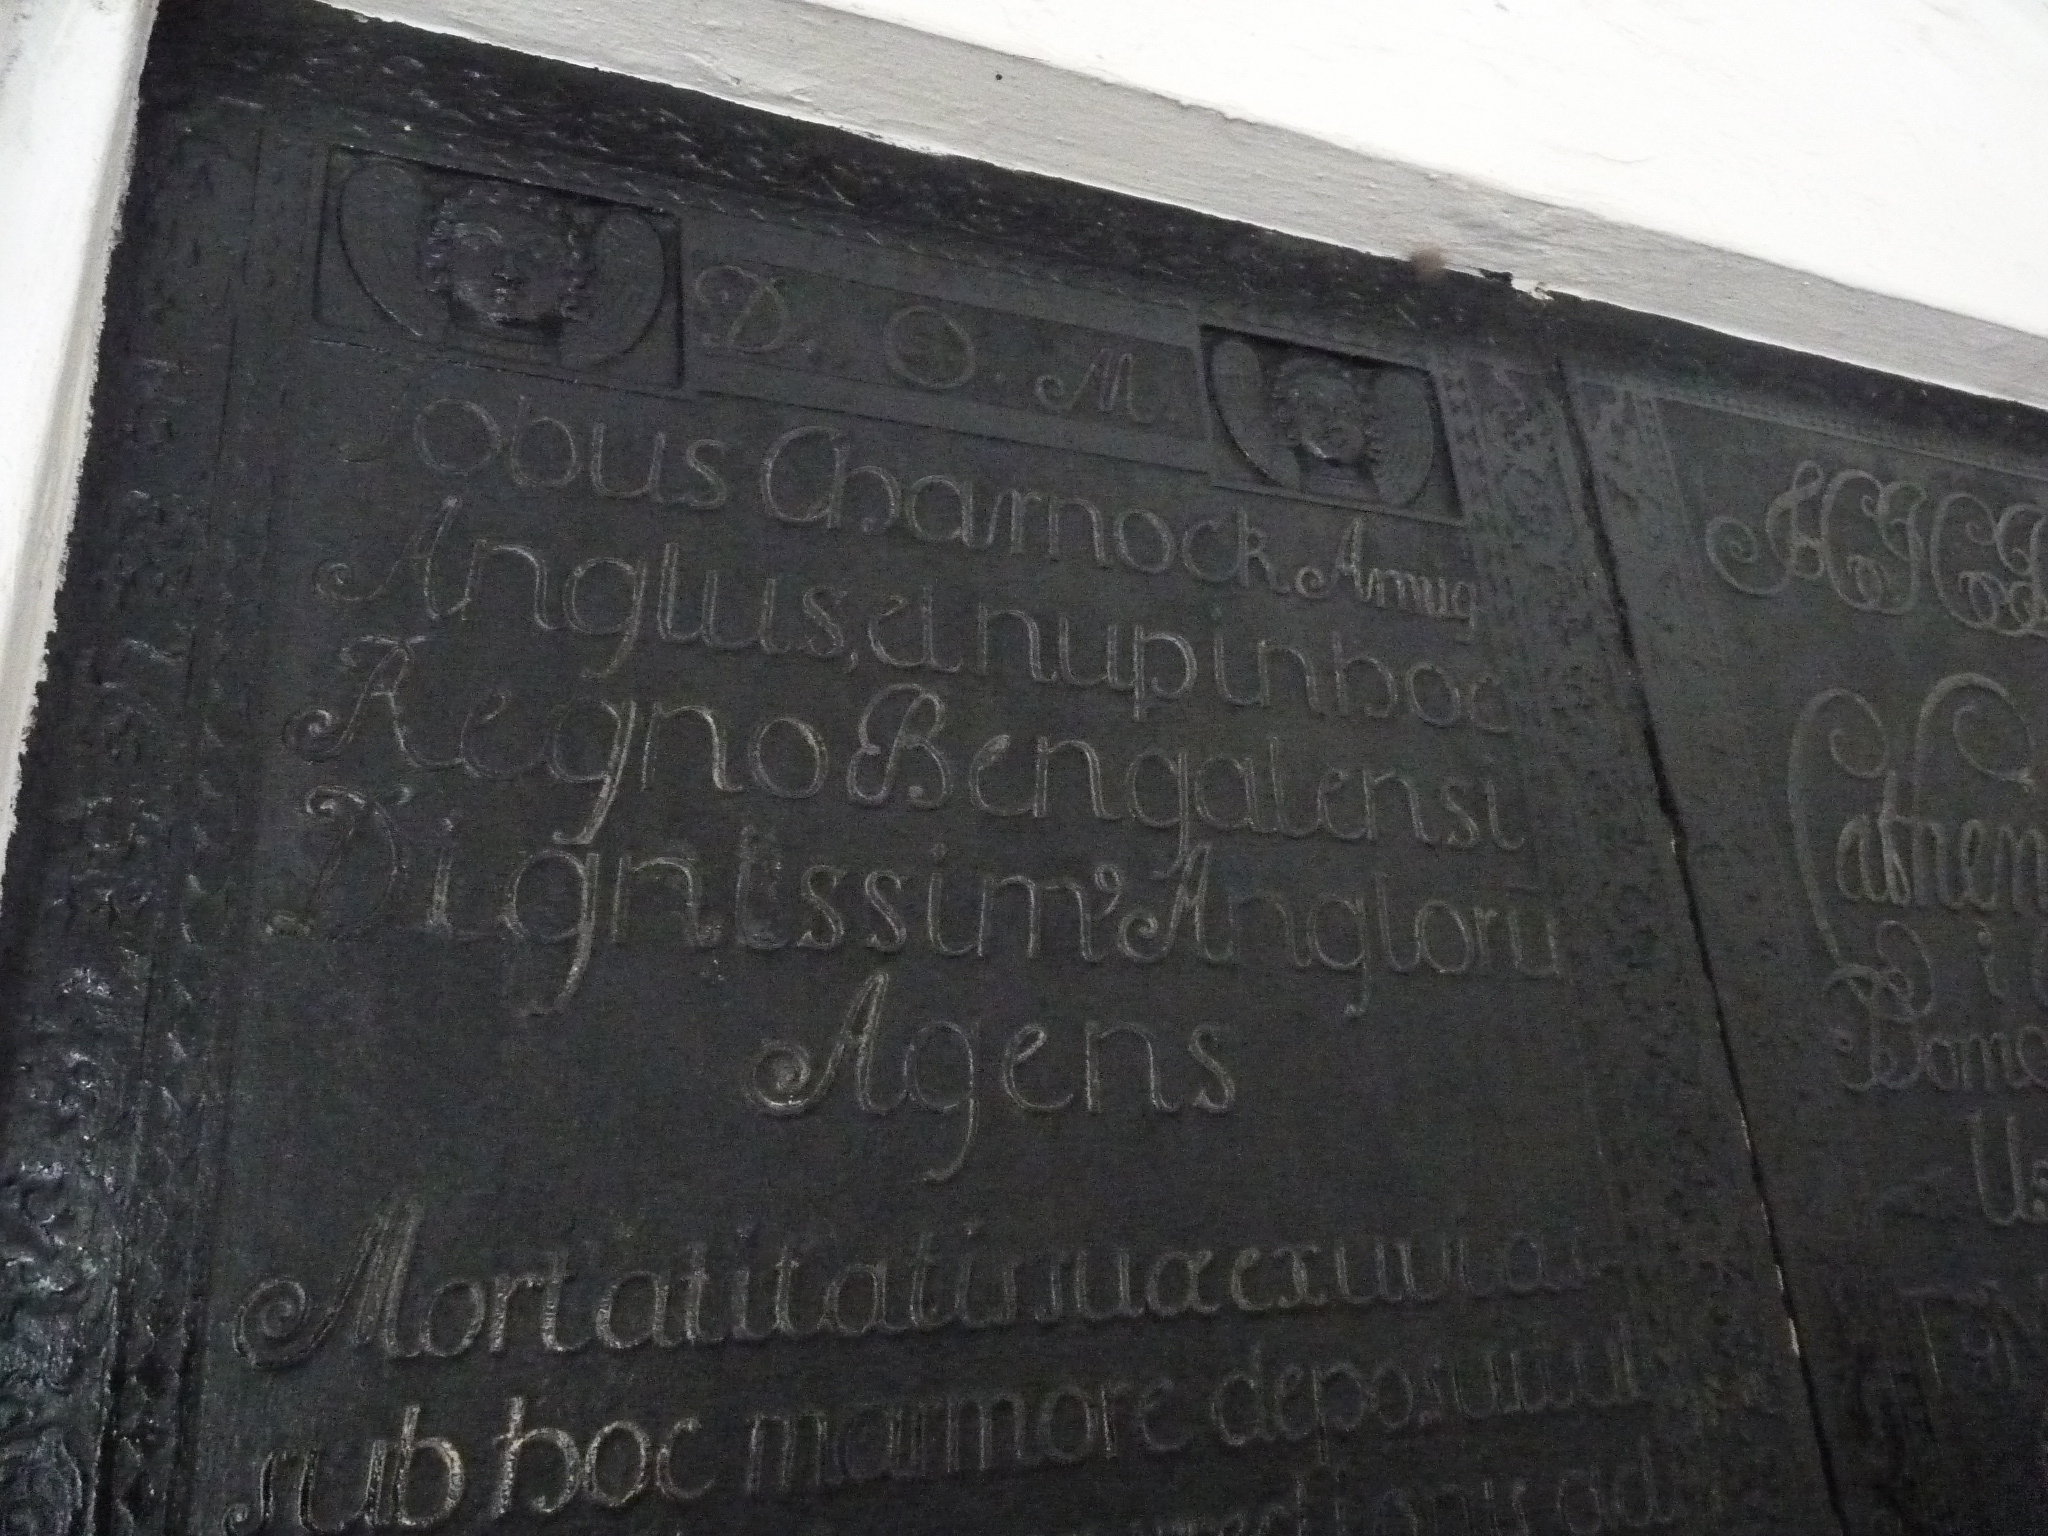 D. O. M.
Jobus Charnock Armig
Anglus, et nup in hoc
Regno Bengalensi
Dignissim9 Anglorū
Agens
Mortalitatis suæ exuvias
sub hoc marmore deposuit
ad
Cathren